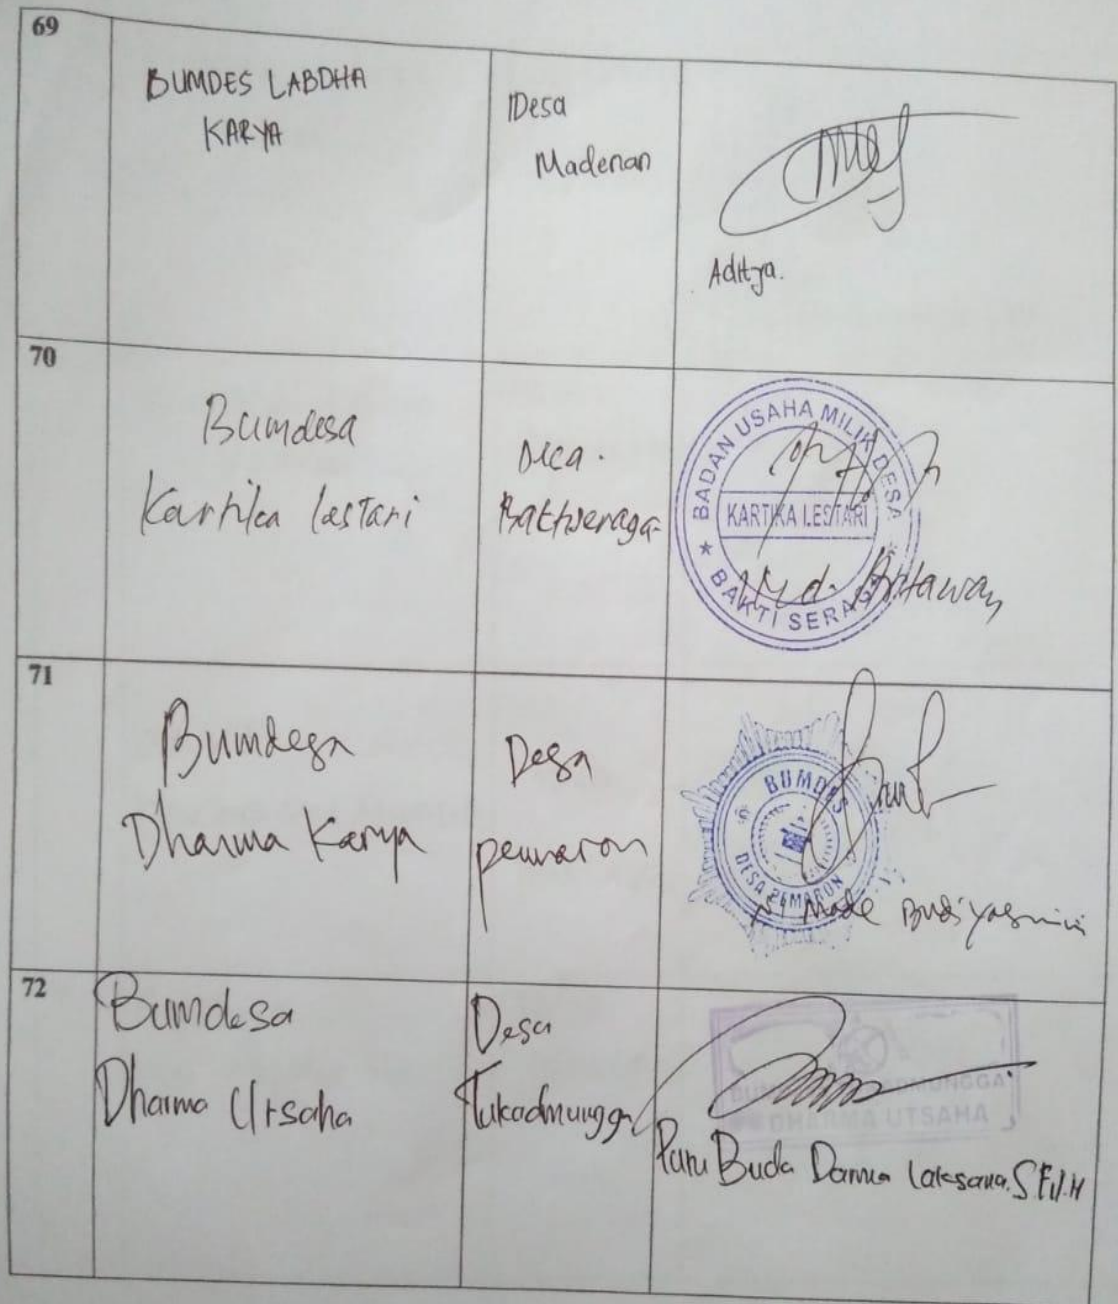 69
BUMDES LABDHA
KARYA
Desa
Madenan
Aditya.
70
Bumdesa
Kartika Lestari
Desa
Baktiseraga
BADAN USAHA MILIK DESA
KARTIKA LESTARI
★ BAKTI SERAGA
71
Bumdesa
Dharma Karya
Desa
pemaron
BUMDES
DESA PEMARON
Ni Made Budiyasmini
72
Bumdesa
Dharma Utsaha
Desa
Tukadmungga
DHARMA UTSAHA
Buda Darma Laksana. S.Fil.H